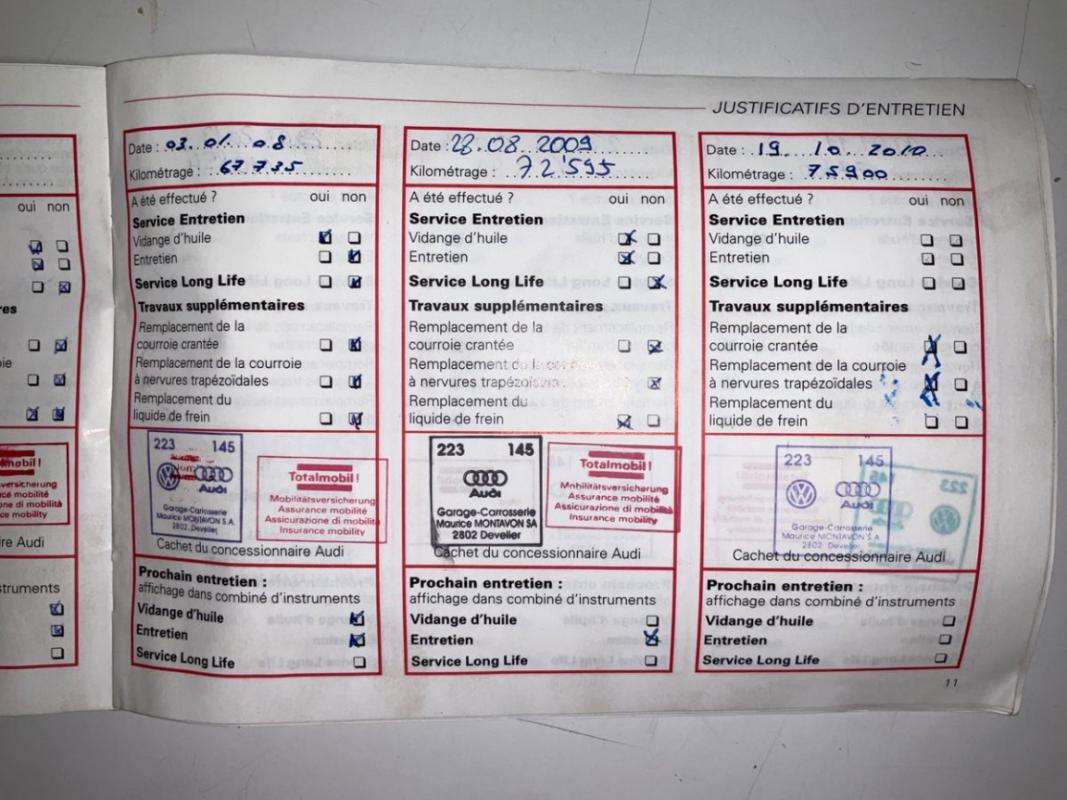 JUSTIFICATIFS D'ENTRETIEN
oui non
res
ie
mobil!
versicherung
ce mobilité
ne di mobilità
ce mobility
re Audi
struments
Date : 03. 01. 08
Kilométrage : 67 735
A été effectué ? oui non
Service Entretien
Vidange d'huile
Entretien
Service Long Life
Travaux supplémentaires
Remplacement de la
courroie crantée
Remplacement de la courroie
à nervures trapézoïdales
Remplacement du
liquide de frein
223 145
Audi
Garage-Carrosserie
Maurice MONTAVON S.A.
2802 Develier
Totalmobil!
Mobilitätsversicherung
Assurance mobilité
Assicurazione di mobilità
Insurance mobility
Cachet du concessionnaire Audi
Prochain entretien :
affichage dans combiné d'instruments
Vidange d'huile
Entretien
Service Long Life
Date : 28.08.2009
Kilométrage : 72'595
A été effectué ? oui non
Service Entretien
Vidange d'huile
Entretien
Service Long Life
Travaux supplémentaires
Remplacement de la
courroie crantée
Remplacement de la courroie
à nervures
Remplacement du
liquide de frein
223 145
Audi
Garage-Carrosserie
Maurice MONTAVON SA
2802 Develier
Totalmobil!
Mobilitätsversicherung
Assurance mobilité
Assicurazione di mobilità
Insurance mobility
Cachet du concessionnaire Audi
Prochain entretien :
affichage dans combiné d'instruments
Vidange d'huile
Entretien
Service Long Life
Date : 19. 10. 2010
Kilométrage : 75900
A été effectué ? oui non
Service Entretien
Vidange d'huile
Entretien
Service Long Life
Travaux supplémentaires
Remplacement de la
courroie crantée
Remplacement de la courroie
à nervures trapézoïdales
Remplacement du
liquide de frein
223 145
Audi
Garage-Carrosserie
Maurice MONTAVON S.A
2802 Develier
223
145
Cachet du concessionnaire Audi
Prochain entretien :
affichage dans combiné d'instruments
Vidange d'huile
Entretien
Service Long Life
11